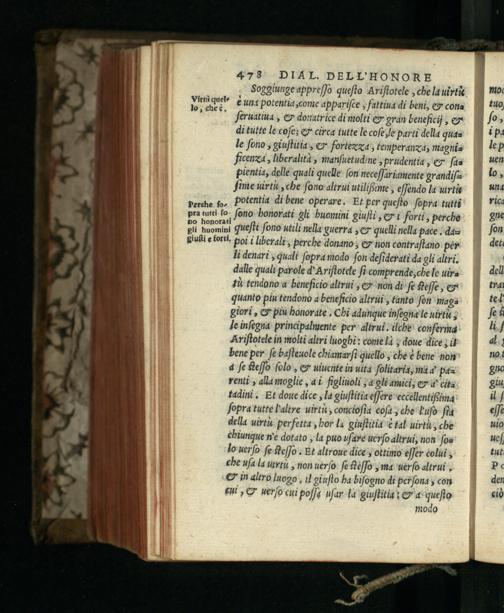 478 DIAL. DELL'HONORE
Soggiunge appresso questo Aristotele, che la uirtù
Virtù quel-
lo, che è.
è una potentia, come apparisce, fattiua di beni, & con=
seruatiua, & donatrice di molti & gran beneficij, &
di tutte le cose; & circa tutte le cose, le parti della qua=
le sono, giustitia, & fortezza, temperanza, magni=
ficenza, liberalità, mansuetudine, prudentia, & sa=
pientia, delle quali quelle son necessariamente grandiss=
sime uirtù, che sono altrui utilissime, essendo la uirtù
potentia di bene operare. Et per questo sopra tutti
Perche so-
pra tutti so-
no honorati
gli huomini
giusti e forti.
sono honorati gli huomini giusti, & i forti, perche
questi sono utili nella guerra, & quelli nella pace. da=
poi i liberali, perche donano, & non contrastano per
li denari, quali sopra modo son desiderati da gli altri.
dalle quali parole d'Aristotele si comprende, che le uir=
tù tendono a beneficio altrui, & non di se stesse, &
quanto piu tendono a beneficio altrui, tanto son mag=
giori, & piu honorate. Chi adunque insegna le uirtù,
le insegna principalmente per altrui. ilche conferma
Aristotele in molti altri luoghi: come là, doue dice, il
bene per se basteuole chiamarsi quello, che è bene non
a se stesso solo, & uiuente in uita solitaria, ma a' pa=
renti, alla moglie, a i figliuoli, a gli amici, & a' cit=
tadini. Et doue dice, la giustitia essere eccellentissima
sopra tutte l'altre uirtù, conciosia cosa, che l'uso sia
della uirtù perfetta, hor la giustitia è tal uirtù, che
chiunque n'è dotato, la può usare uerso altrui, non so=
lo uerso se stesso. Et altroue dice, ottimo esser colui,
che usa la uirtù, non uerso se stesso, ma uerso altrui.
& in altro luogo, il giusto ha bisogno di persona, con
cui, & uerso cui possa usar la giustitia: & a questo
modo